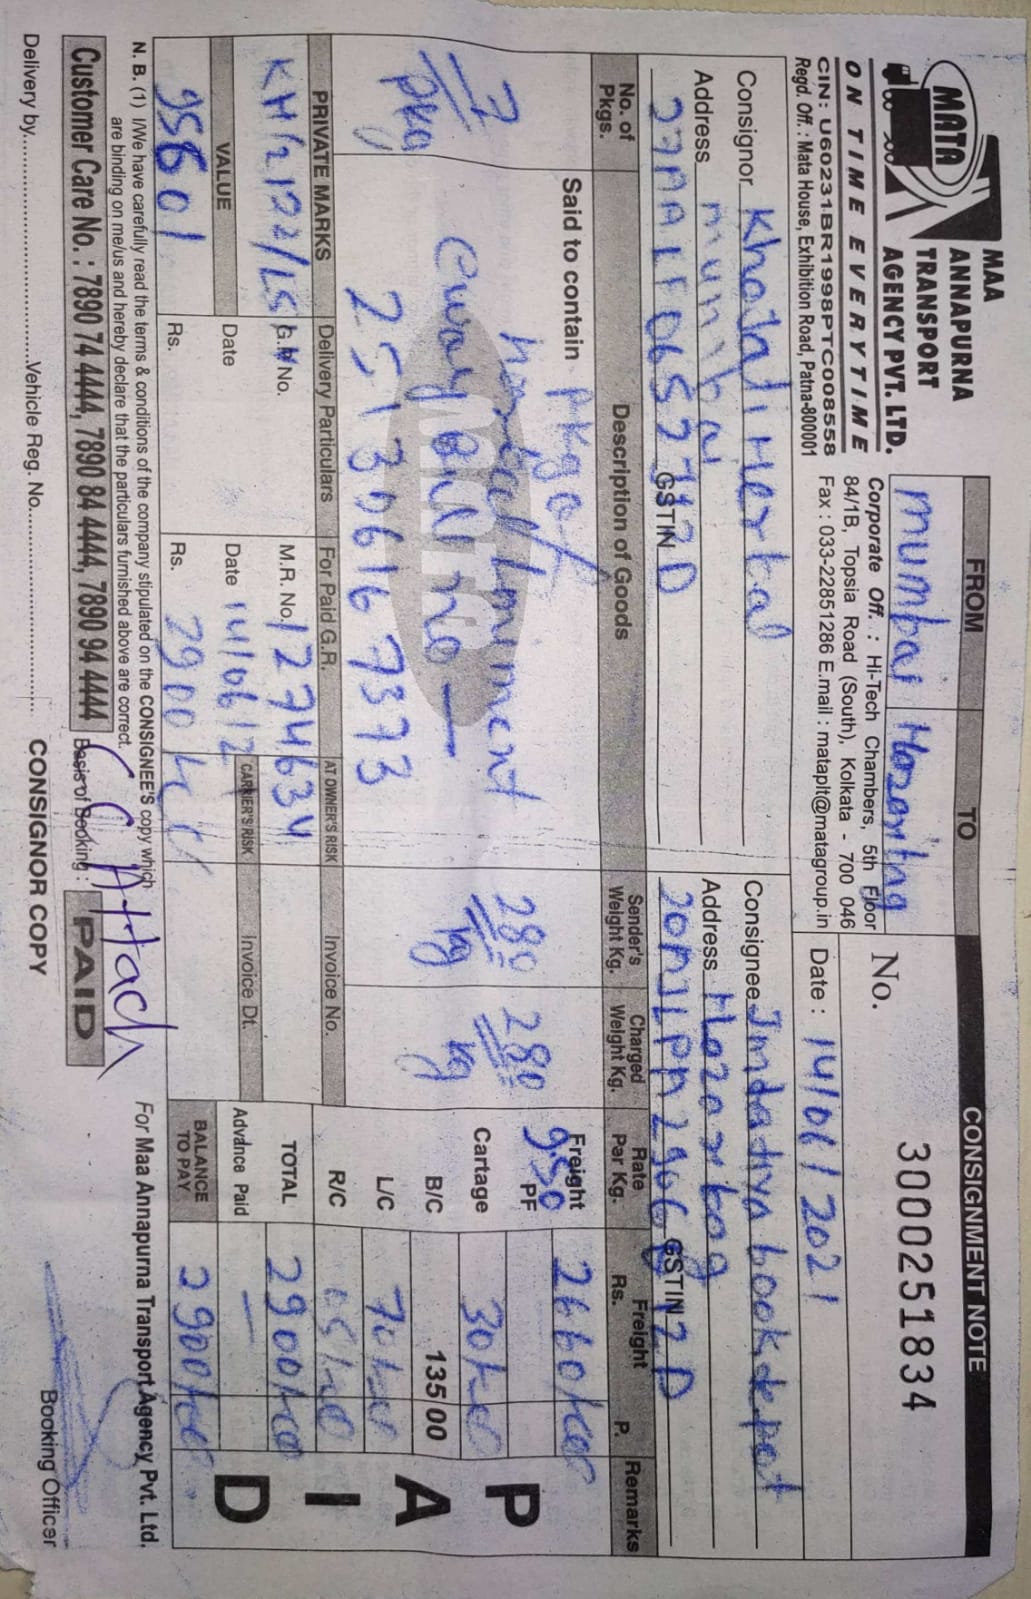 MATA
MAA
ANNAPURNA
TRANSPORT
AGENCY PVT. LTD.
ON TIME EVERYTIME
CIN: U60231BR1998PTC008558
Regd. Off. : Mata House, Exhibition Road, Patna-800001
FROM TO CONSIGNMENT NOTE
Mumbai Hazaribag
No. 3000251834
Corporate Off. : Hi-Tech Chambers, 5th Floor
84/1B, Topsia Road (South), Kolkata - 700 046
Fax : 033-22851286 E.mail : mataplt@matagroup.in
Date : 14/06/2021
Consignor
Address Mumbai
GSTIN
Consignee book depot
Address Hazaribag
GSTIN
No. of Pkgs. Description of Goods Sender's Weight Kg. Charged Weight Kg. Rate Per Kg. Freight Rs. P. Remarks
7 Pkg
Said to contain Pkg of
Eway Bill no —
251306167373
280 kg
280 kg
Freight 9.50 2660/00
PF
Cartage 30/00
B/C 135/00
L/C 70/00
R/C 05/00
TOTAL 2900/00
Advance Paid —
BALANCE TO PAY 2900/00
PAID
PRIVATE MARKS Delivery Particulars For Paid G.R. AT OWNER'S RISK Invoice No.
KH/2122/LS G.R. No. M.R. No. 1274634
VALUE Date Date 14/06/2 CARRIER'S RISK Invoice Dt.
95601 Rs. Rs. 2900
N. B. (1) I/We have carefully read the terms & conditions of the company stipulated on the CONSIGNEE'S copy which
are binding on me/us and hereby declare that the particulars furnished above are correct.
C C Attach
For Maa Annapurna Transport Agency Pvt. Ltd.
Customer Care No. : 7890 74 4444, 7890 84 4444, 7890 94 4444
Basis of Booking : PAID
Delivery by Vehicle Reg. No.
CONSIGNOR COPY
Booking Officer